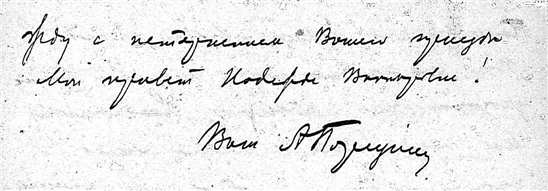 Жду с нетерпением Вашего приезда
Мой привет Надежде !
Ваш